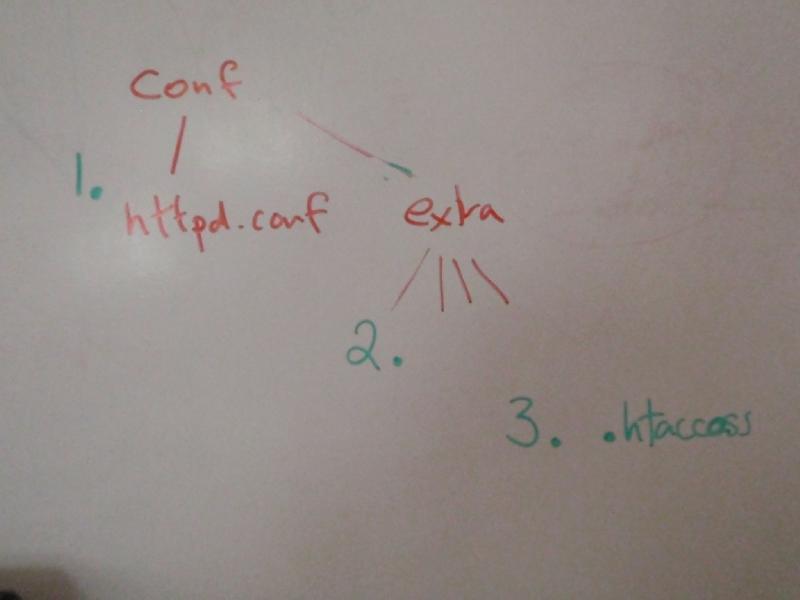 Conf
1.
httpd.conf extra
2.
3. .htaccess